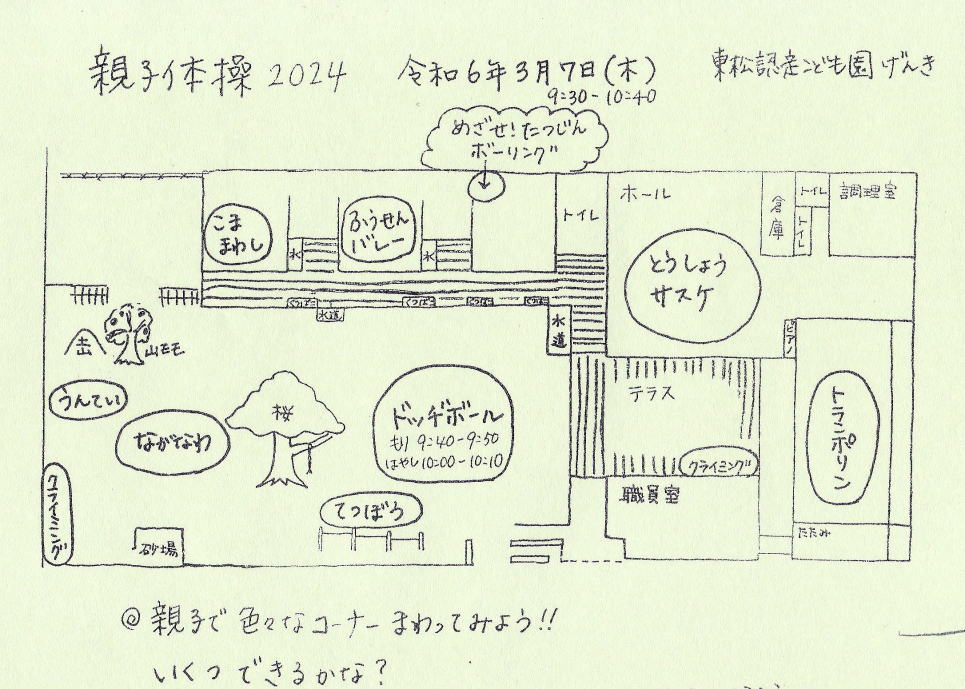 親子体操 2024 令和6年3月7日(木) 東松認定こども園げんき
9:30-10:40
めざせ!たつじん
ボーリング
こま
まわし
水
ふうせん
バレー
水
トイレ
ホール
倉庫
トイレ
トイレ
調理室
とうしょう
サスケ
くつばこ
くつばこ
くつばこ
くつばこ
水道
水道
ピアノ
山
山モモ
うんてい
ながなわ
桜
ドッヂボール
もり 9:40-9:50
はやし 10:00-10:10
テラス
クライミング
トランポリン
クライミング
てつぼう
砂場
職員室
たたみ
@ 親子で色々なコーナーまわってみよう!!
いくつできるかな?